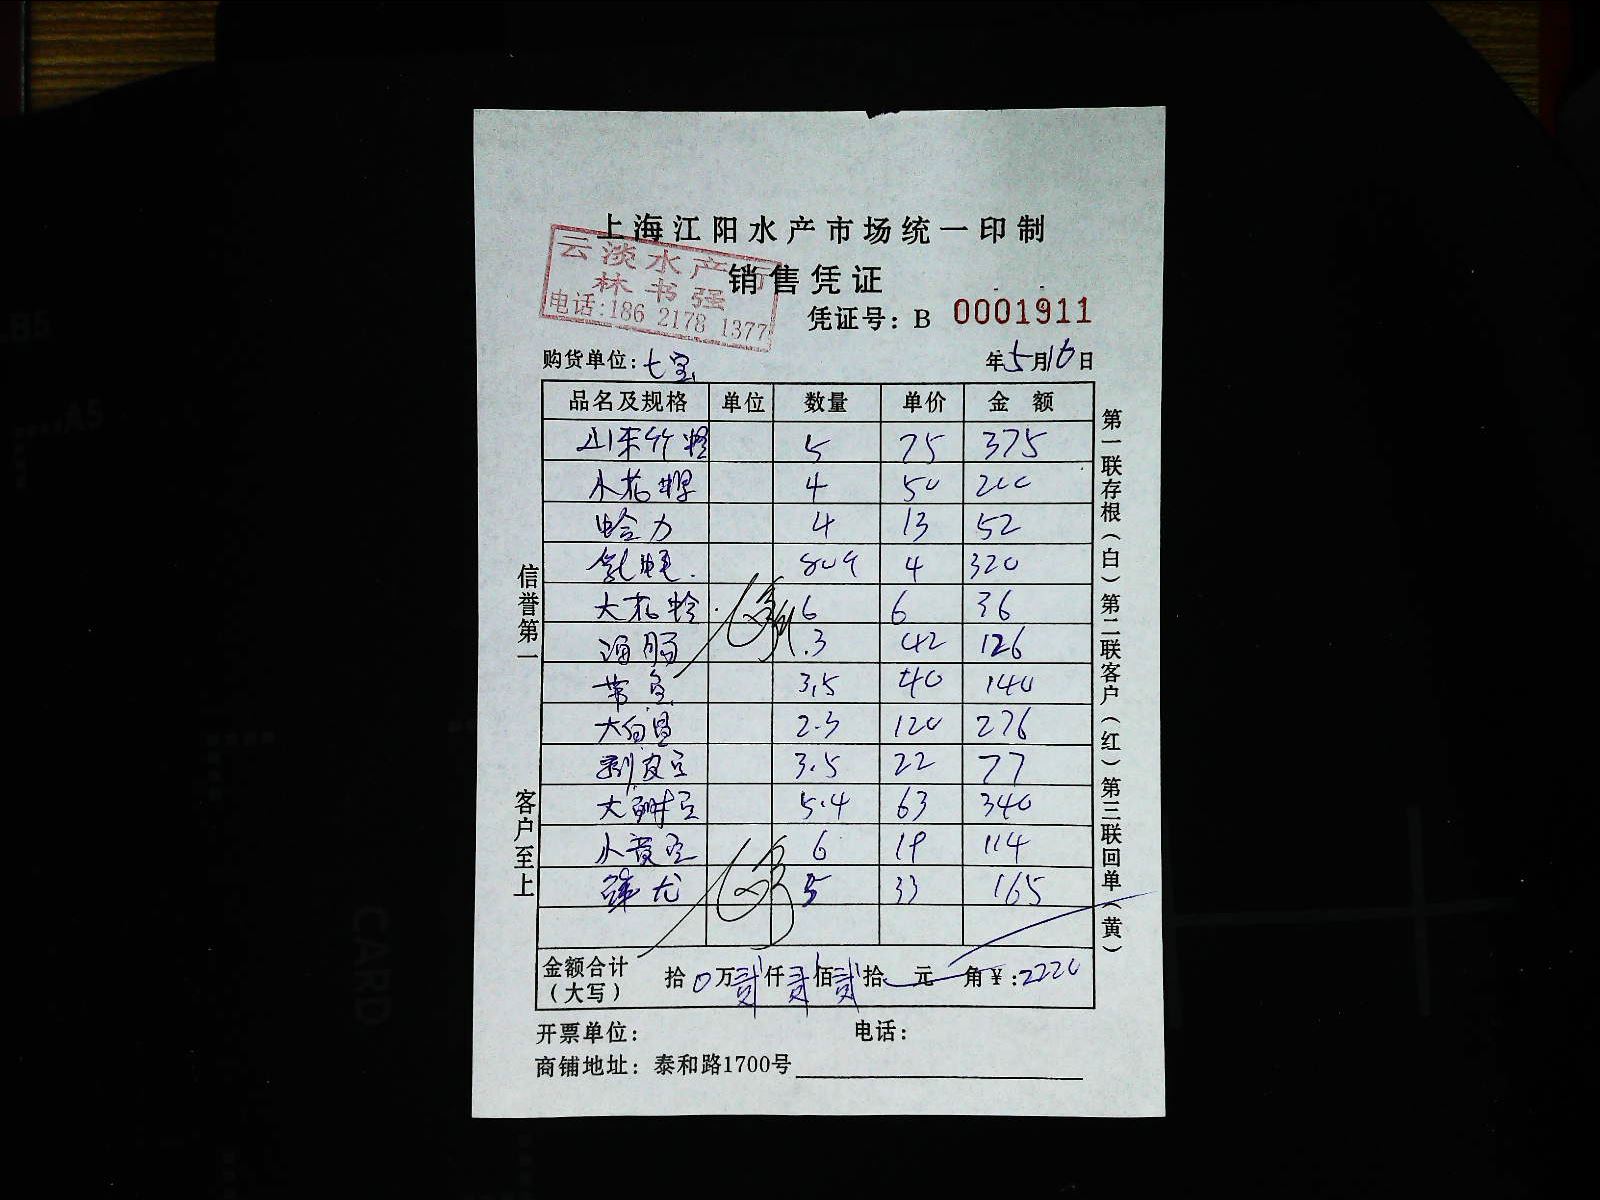 上海江阳水产市场统一印制
云淡水产行
销售凭证
林书强
电话:186 2178 1377
凭证号: B 0001911
购货单位: 七宝 年5月16日
品名及规格 单位 数量 单价 金额
5 75 375
4 50 200
蛤力 4 13 52
4 320
大花蛤 6 6 36
海肠 3 42 126
带鱼 3.5 40 140
大白昌 2.3 120 276
剥皮豆 3.5 22 77
大 豆 5.4 63 340
小黄 6 19 114
尤 5 33 165
金额合计(大写) 拾 0万贰仟贰佰贰拾 元 角 ¥:2220
开票单位: 电话:
商铺地址: 泰和路1700号
信誉第一
客户至上
第一联存根(白)第二联客户(红)第三联回单(黄)
B5
A5
CARD